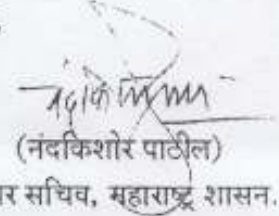 (नंदकिशोर पाटील)
र सचिव, महाराष्ट्र शासन.